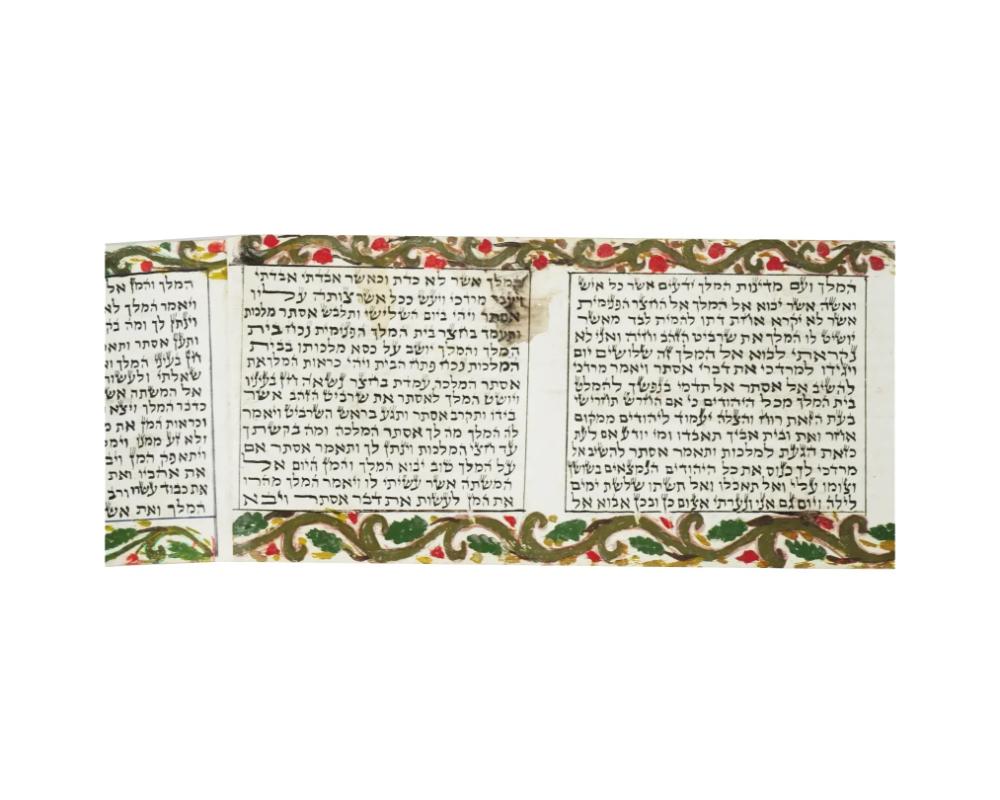 המלך ועם מדינות המלך ידעים אשר כל איש
ואשה אשר יבוא אל המלך אל החצר הפנימית
אשר לא יקרא אחת דתו להמית לבד מאשר
יושיט לו המלך את שרביט הזהב וחיה ואני לא
נקראתי לבוא אל המלך זה שלושים יום
ויגידו למרדכי את דברי אסתר ויאמר מרדכי
להשיב אל אסתר אל תדמי בנפשך להמלט
בית המלך מכל היהודים כי אם החרש תחרישי
בעת הזאת רוח והצלה יעמוד ליהודים ממקום
אחר ואת ובית אביך תאבדו ומי יודע אם לעת
כזאת הגעת למלכות ותאמר אסתר להשיב אל
מרדכי לך כנוס את כל היהודים הנמצאים בשושן
וצומו עלי ואל תאכלו ואל תשתו שלשת ימים
לילה ויום גם אני ונערתי אצום כן ובכן אבוא אל
המלך אשר לא כדת וכאשר אבדתי אבדתי
ויעבר מרדכי ויעש ככל אשר צותה עליו
אסתר ויהי ביום השלישי ותלבש אסתר מלכות
ותעמד בחצר בית המלך הפנימית נכח בית
המלך והמלך יושב על כסא מלכותו בבית
המלכות נכח פתח הבית ויהי כראות המלך את
אסתר המלכה עמדת בחצר נשאה חן בעיניו
ויושט המלך לאסתר את שרביט הזהב אשר
בידו ותקרב אסתר ותגע בראש השרביט ויאמר
לה המלך מה לך אסתר המלכה ומה בקשתך
עד חצי המלכות וינתן לך ותאמר אסתר אם
על המלך טוב יבוא המלך והמן היום אל
המשתה אשר עשיתי לו ויאמר המלך מהרו
את המן לעשות את דבר אסתר ויבא
המלך והמן אל
ויאמר המלך לא
וינתן לך ומה בק
ותען אסתר ותא
חן בעיני המלך
שאלתי ולעשו
אל המשתה אש
כדבר המלך ויצא
וכראות המן את מ
ולא זע ממנו וימ
ויתאפק המן ויב
את אהביו ואת
את כבוד עשרו ורב
המלך ואת אש